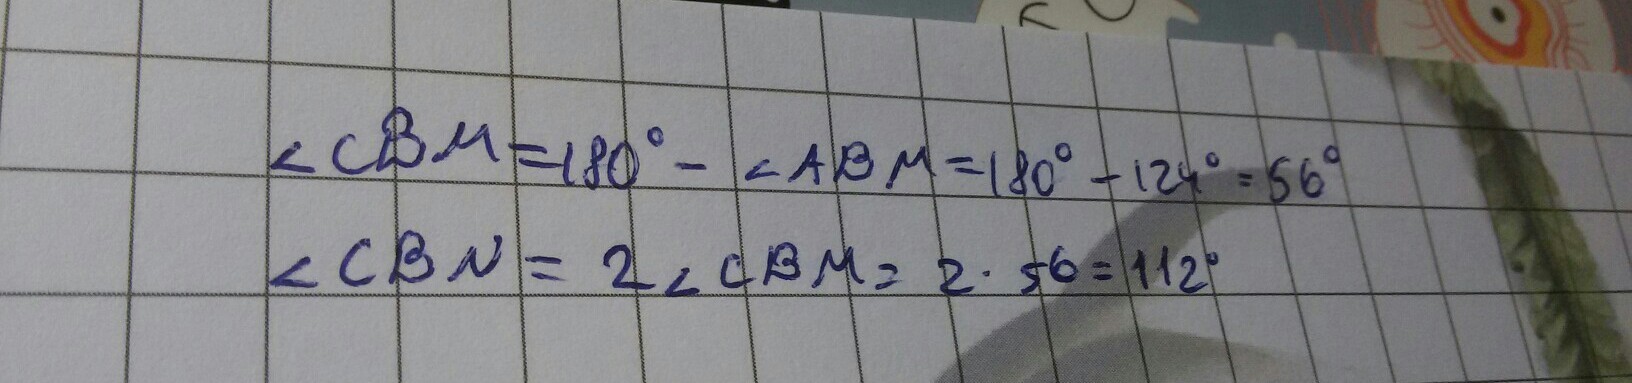 ∠CBM=180°- ∠ABM=180°-124°=56°
∠CBN = 2∠CBM= 2·56=112°